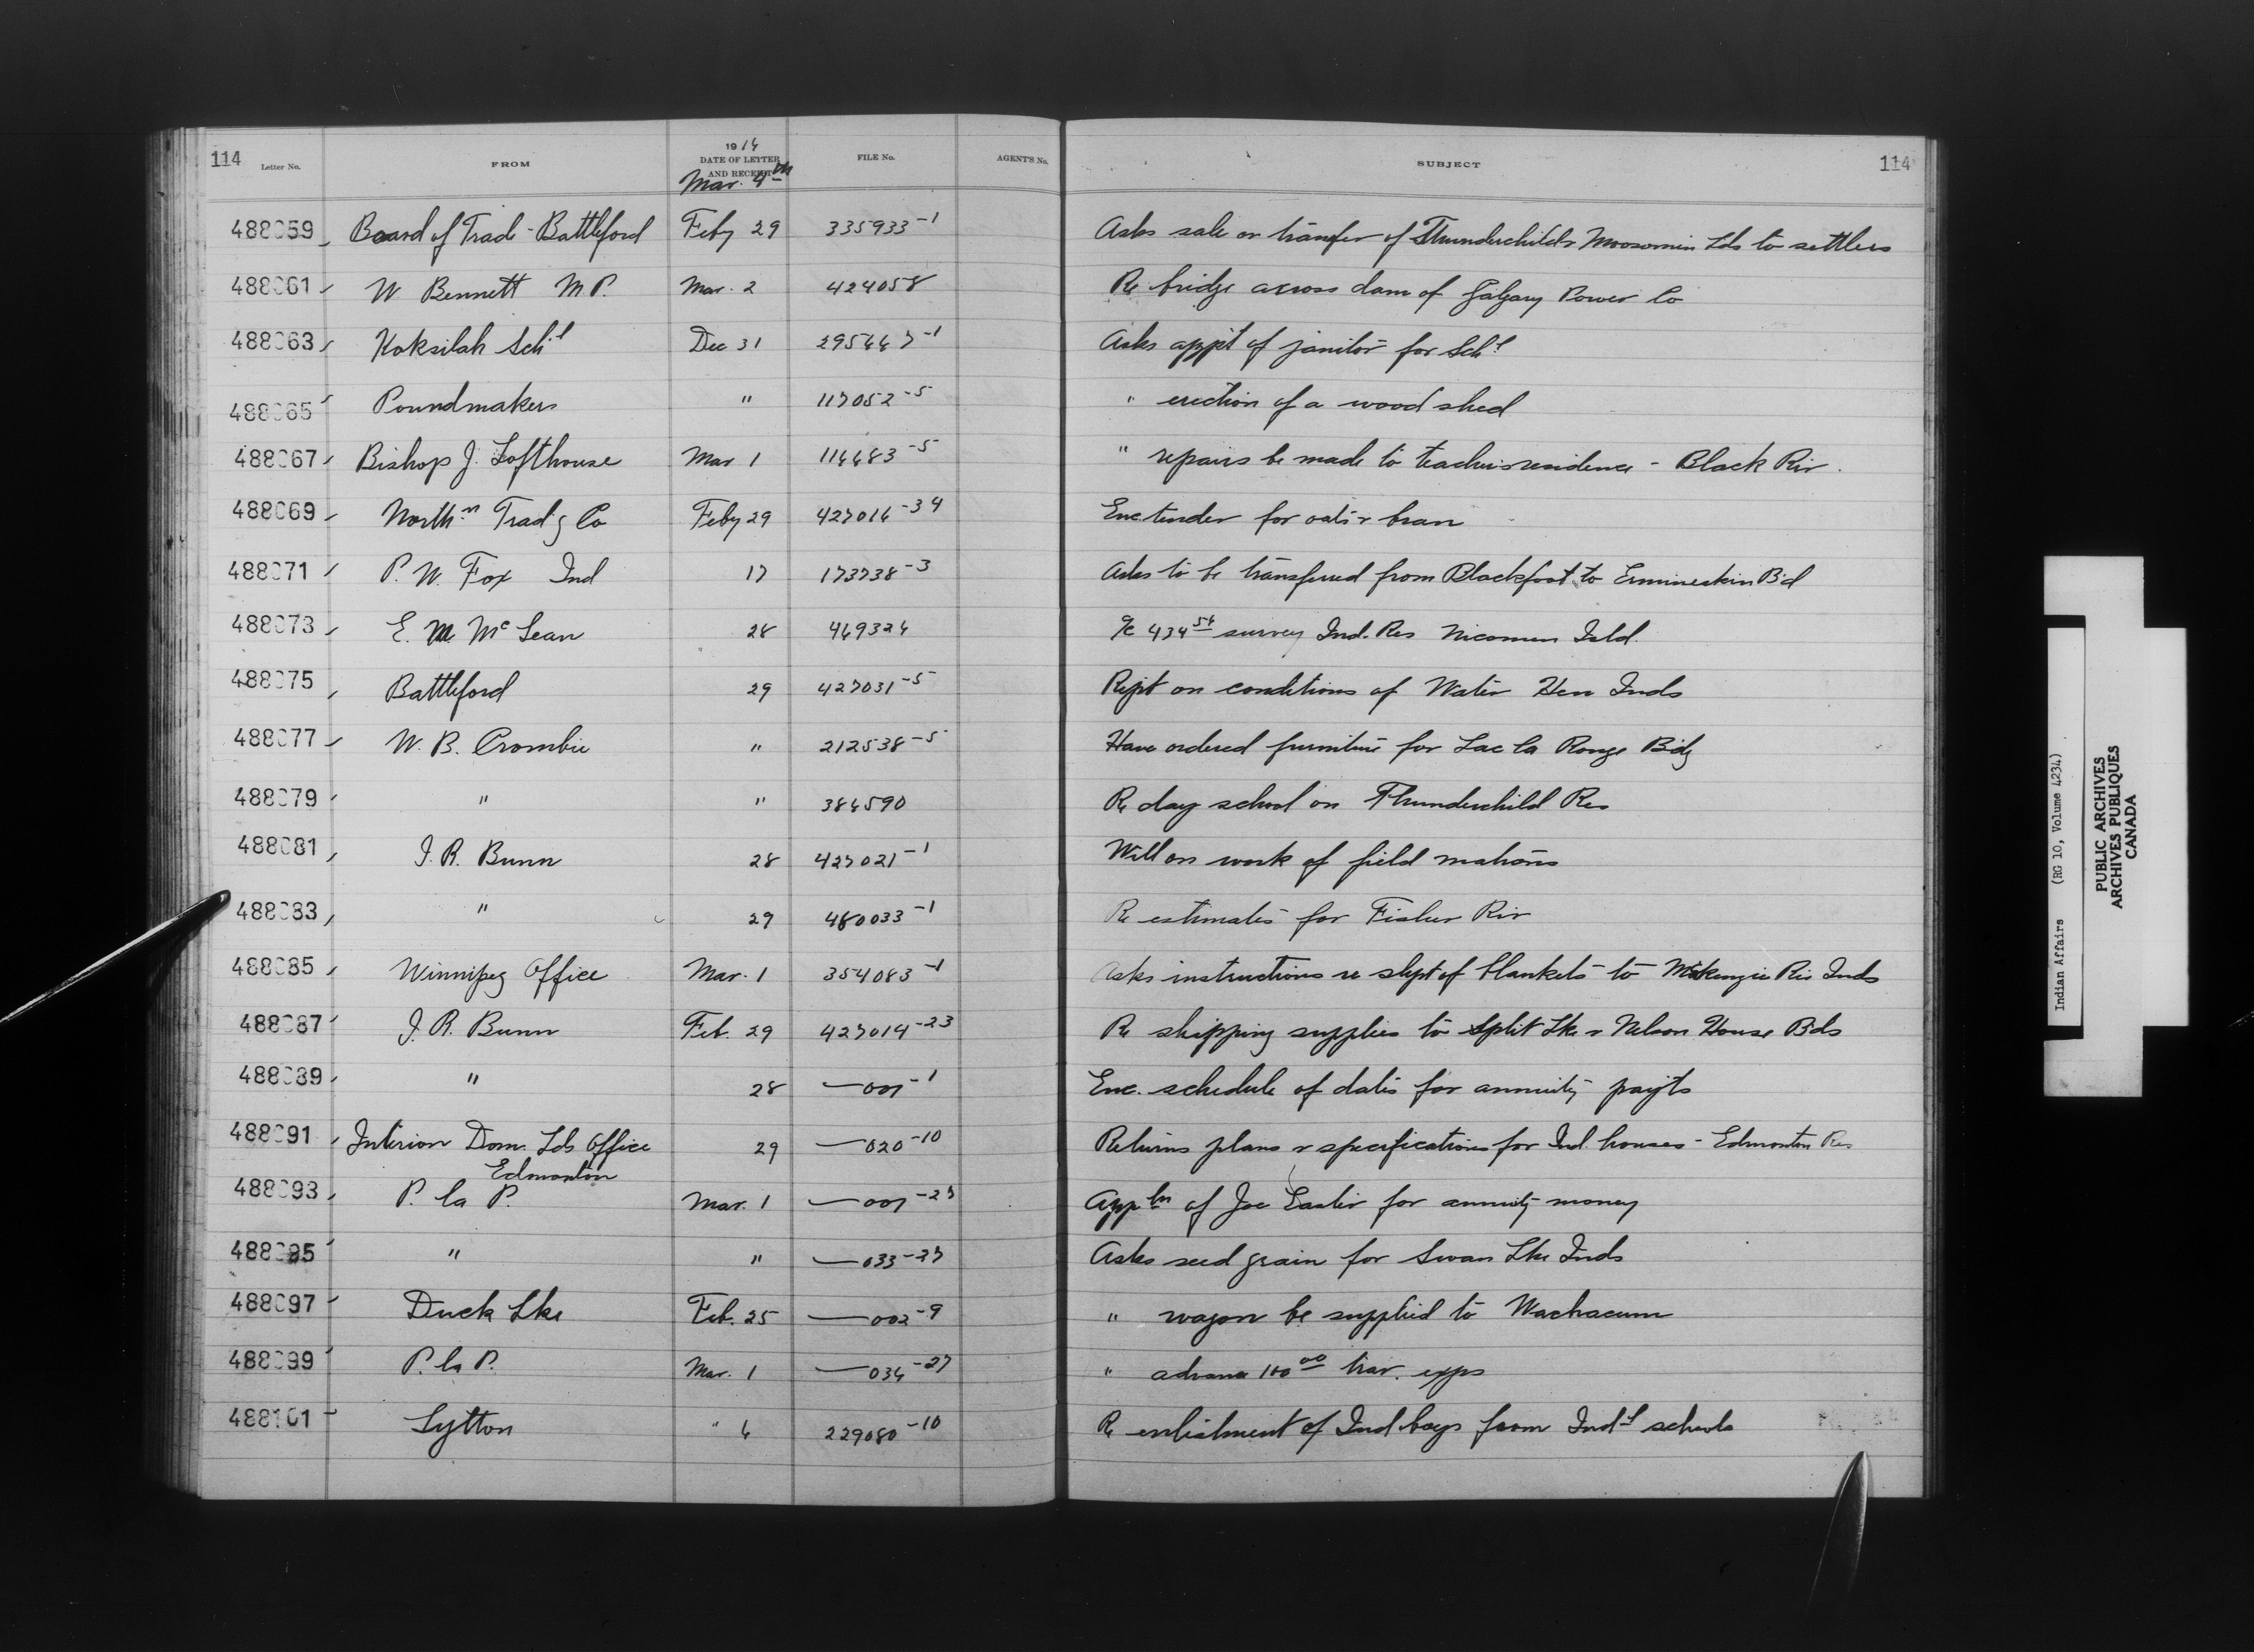 114 Letter No. FROM 1916 DATE OF LETTER AND RECEIPT FILE No. AGENT'S No. SUBJECT 114
Mar. 4th
488059 Board of Trade - Battleford Feby 29 335933-1 Asks sale or transfer of Thunderchild & Moosomin Lds to settlers
488061 W Bennett M P. Mar. 2 424058 Re bridge across dam of Calgary Power Co
488063 Koksilah Schl Dec 31 295667-1 Asks appt of janitor for Schl
488065 Poundmakers " 117052-5 " erection of a wood shed
488067 Bishop J. Lofthouse Mar 1 116683-5 " repairs be made to teachers residence - Black Riv.
488069 Northn Tradg Co Feby 29 427016-34 Enc tender for oats & bran
488071 P. W. Fox Ind 17 173738-3 Asks to be transferred from Blackfoot to Ermineskin Bd
488073 E. M. McLean 28 469326 a/c 434 54 survey Ind. Res Nicomen Isld.
488075 Battleford 29 427031-5 Rept on conditions of Water Hen Inds
488077 W. B. Crombie " 212538-5 Have ordered furniture for Lac la Ronge Bdg
488079 " " 386590 Re day school on Thunderchild Res
488081 J. R. Bunn 28 427021-1 Will on work of field matrons
488083 " 29 480033-1 Re estimates for Fisher Riv
488085 Winnipeg Office Mar. 1 354083-1 Asks instructions re shpt of blankets to McKenzie Riv Inds
488087 J. R. Bunn Feb. 29 427014-23 Re shipping supplies to Split Lke & Nelson House Bds
488089 " 28 — 007-1 Enc. schedule of dates for annuity payts
488091 Interior Dom. Lds Office 29 — 020-10 Returns plans & specifications for Ind. houses - Edmonton Res
Edmonton
488093 P. la P. Mar. 1 — 007-27 Appln of Joe Easter for annuity money
488095 " " — 033-27 Asks seed grain for Swan Lke Inds
488097 Duck Lke Feb. 25 — 002-9 " wagon be supplied to Wachacum
488099 P. la P. Mar. 1 — 036-27 " advance 100 00 trav. exps
488101 Lytton " 6 229080-10 Re enlistment of Ind boys from Indl schools
Indian Affairs (RG 10, Volume 4234)
PUBLIC ARCHIVES
ARCHIVES PUBLIQUES
CANADA